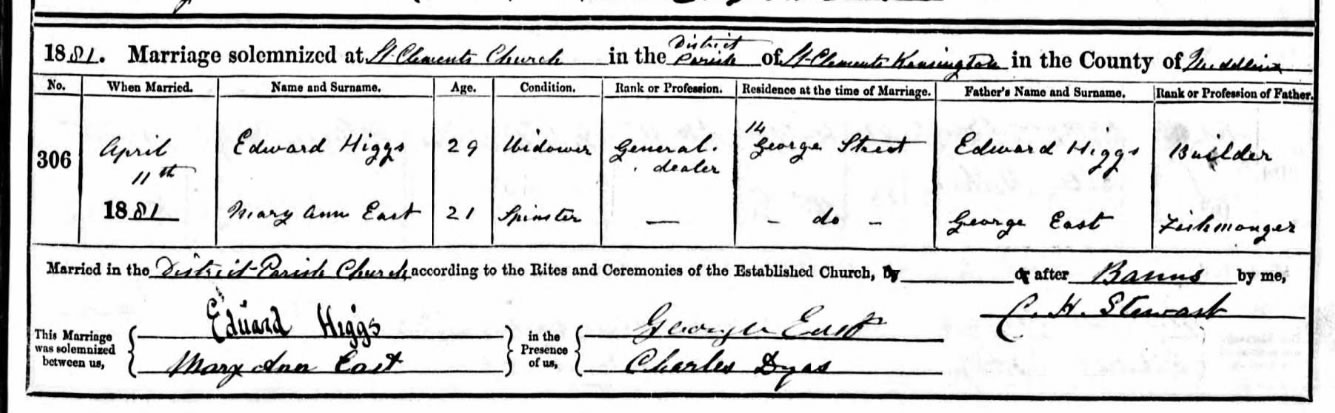 1881. Marriage solemnized at St Clements Church in the District Parish of St Clements Kensington in the County of Middlesex
No. When Married. Name and Surname. Age. Condition. Rank or Profession. Residence at the time of Marriage. Father's Name and Surname. Rank or Profession of Father.
306 April 11th 1881 Edward Higgs 29 Widower General dealer 14 George Street Edward Higgs Builder
Mary Ann East 21 Spinster — - do - George East Fishmonger
Married in the District Parish Church according to the Rites and Ceremonies of the Established Church, by or after Banns by me,
C. H. Stewart
This Marriage was solemnized between us, Edward Higgs in the Presence of us, George East
Mary Ann East Charles Dyas